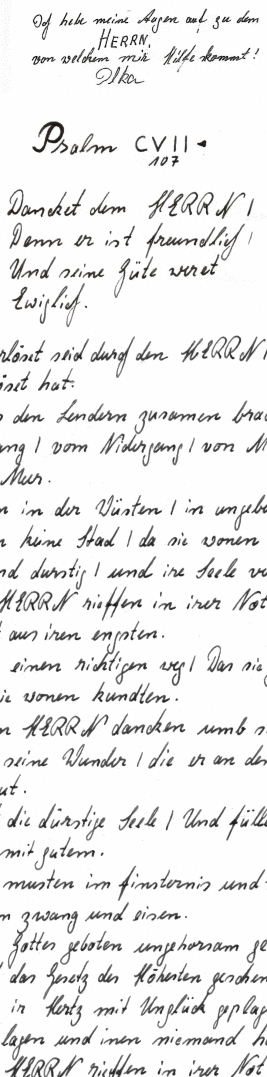 Ich hebe meine Augen auf zu dem
HERRN,
von welchem mir Hülfe kommt!
Ilka
Psalm CVII.
107
Dancket dem HERRN /
Denn er ist freundlich /
Und seine Güte weret
Ewiglich.
rlöset seid durch den HERRN /
öset hat.
den Lendern zusamen brac
ang / vom Nidergang / von M
Meer.
n in der Wüsten / in ungebe
n keine Stad / da sie wonen
nd durstig / und ire Seele ve
HERRN rieffen in irer Not
aus iren engsten.
einen richtigen weg / Das sie
ie wonen kundten.
n HERRN dancken umb s
seine Wunder / die er an de
ut.
die dürstige Seele / Und fülle
mit gutem.
musten im finsternis und
n zwang und eisen.
Gottes geboten ungehorsam ge
das Gesetz des Höhesten geschen
ir Hertz mit Unglück geplag
lagen und inen niemand h
HERRN rieffen in irer Not